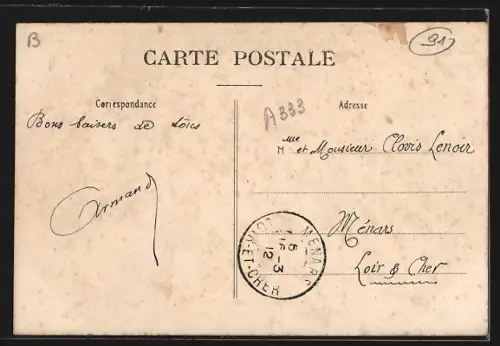 B
91
CARTE POSTALE
Correspondance
Adresse
A333
Bons baisers de tous
Armand
Mme et Monsieur Clovis Lenoir
Ménars
Loir & Cher
MENARS
6 - 3
12
LOIR-ET-CHER